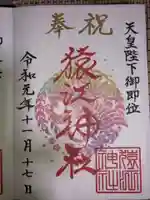 奉祝
天皇陛下御即位
猿江神社
令和元年十一月十七日
猿江
神社